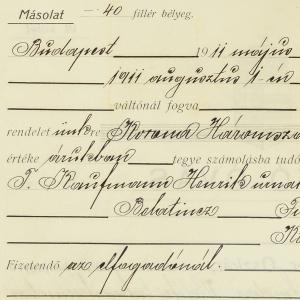 Másolat — 40 fillér bélyeg.
Budapest 1911 május
1911 augusztus 1-én
váltónál fogva
rendelet ünkre Korona Háromszá
értéke árukban tegye számolásba tudó
T. Kaufmann Henrik urna
Belatincz
Fizetendő az elfogadónál.